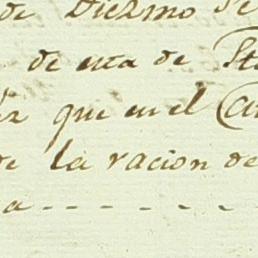 de Diezmo de
de esta de
que en el
de la racion de
a - - - - - -